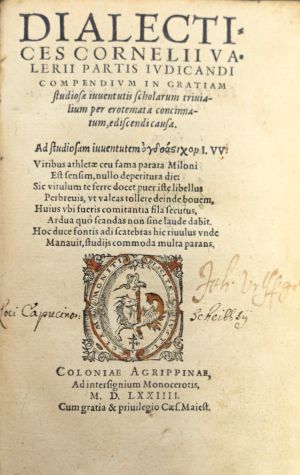 DIALECTI-
CES CORNELII VA-
LERII PARTIS IVDICANDI
COMPENDIVM IN GRATIAM
studiosæ iuuentutis scholarum triuia-
lium per erotemata concinna-
tum, ediscendi causa.
Ad studiosam iuuentutem
Viribus athletæ ceu fama parata Miloni
Est sensim, nullo deperitura die:
Sic vitulum te ferre docet puer iste libellus
Perbreuis, vt valeas tollere deinde bouem,
Huius vbi fueris comitantia fila secutus,
Ardua quò scandas non sine laude dabit.
Hoc duce fontis adi scatebras hic riuulus vnde
Manauit, studijs commoda multa parans,
Joh.
Loci Capucinor:
Scheibbsij
COLONIAE AGRIPPINAE,
Ad intersignium Monocerotis,
M. D. LXXIIII.
Cum gratia & priuilegio Cæs. Maiest.